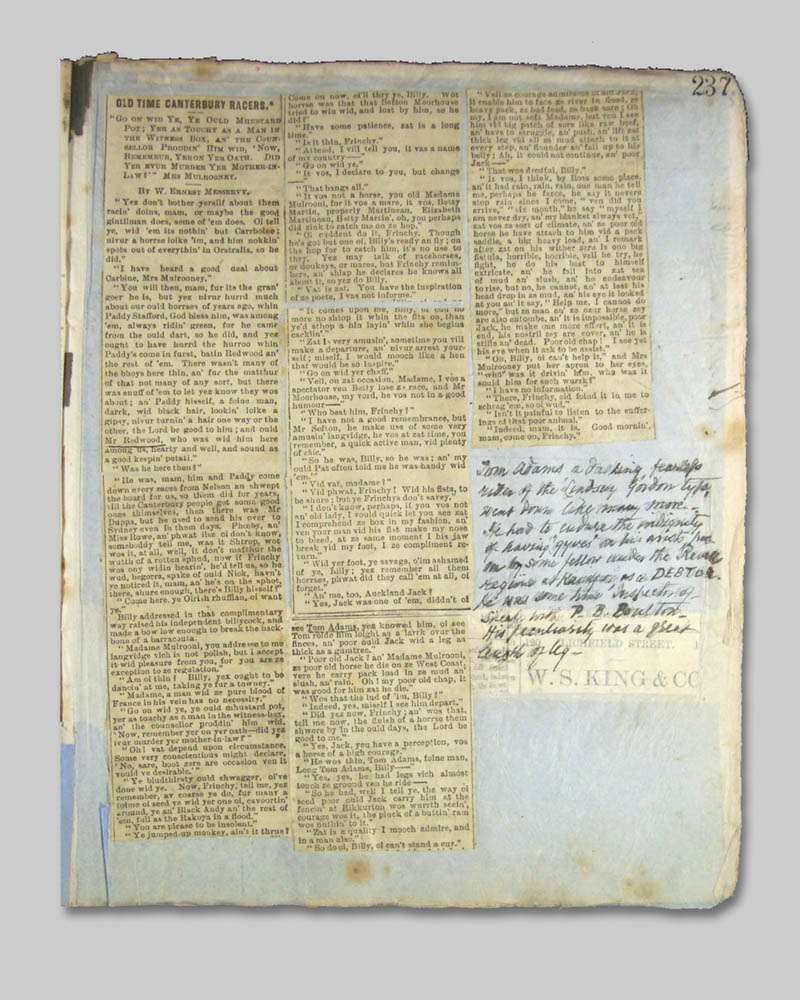 237
OLD TIME CANTERBURY RACERS.*
"GO ON WID YE, YE OULD MHUSTARD
POT; YER AS TOUCHY AS A MAN IN
THE WITNESS BOX, AN' THE COUN-
SELLOR PRODDIN' HIM WID, 'NOW,
REMEMBUR, YER ON YER OATH. DID
YER EVUR MURDER YER MOTHER-IN-
LAW?'" MRS MULROONEY.
BY W. ERNEST MESSERVY.
"Yez don't bother yersilf about them
racin' doins, mam, or maybe the good
gintilman does, some of 'em does. Oi tell
ye, wid 'em its nothin' but Carrboine;
nivur a horse loike 'im, and him nokkin'
spots out of everythin' in Oratralia, so he
did."
"I have heard a good deal about
Carbine, Mrs Mulrooney."
"You will then, mam, fur its the gran'
goer he is, but yez nivur hurrd much
about our ould horses of years ago, whin
Paddy Stafford, God bless him, was among
'em, always ridin' green, for he came
from the ould dars, so he did, and yez
ought to have herrd the hurroo whin
Paddy's come in furst, batin Redwood an'
the rest of 'em. There wasn't many of
the bhoys here thin, an' fur the matthur
of that not many of any sort, but there
was enuff of 'em to let ye know they wos
about; an' Paddy hisself, a foine man,
darrk, wid black hair, lookin' loike a
gipsy, nivur turnin' a hair one way or the
other, the Lord be good to him; and ould
Mr Redwood, who was wid him here
among us, hearty and well, and sound as
a good keepin' petati."
"Was he here then?"
"He was, mam, him and Paddy come
down every races from Nelson an shwept
the board for us, so them did for years,
till the Canterbury people got some good
ones thimselves, then there was Mr
Duppa, but he used to send his over to
Sydney even in them days. Phœby, an'
Miss Rowe, an' phwat ilse oi don't know,
somebuddy tell me, was it Shtrop, wot
wos it, at all, well, it don't matthur the
wutth of a rotten sphud, now if Frinchy
was ony widin hearin', he'd tell us, so he
wud, begorra, spake of ould Nick, havn't
ye noticed it, mam, an' he's on the sphot,
there, shure enough, there's Billy hisself!"
"Come here, ye Oirish rhuffian, oi want
ye."
Billy addressed in that complimentary
way raised his independent billycock, and
made a bow low enough to break the back-
bone of a barracouta.
"Madame Mulrooni, you address to me
langvidge vich is not polish, but I accept
it wid pleasure from you, for you are ze
exception to ze regulation."
"Am oi thin? Billy, yez ought to be
dancin' at me, taking ye fur a towney."
"Madame, a man wid ze pure blood of
France in his vein has no necessity."
"Go on wid ye, ye ould mhustard pot,
yer as touchy as a man in the witness-box,
an' the counsellor proddin' him wid,
'Now, remember yer on yer oath—did yez
ivur murder yer mother-in-law?'"
"Oh! vat depend upon circumstance.
Some very conscientious might declare,
'No, sare, boot zere are occasion ven it
vould ve desirable.'"
"Ye bludthirsty ould shwagger, oi've
done wid ye. Now, Frinchy, tell me, yez
remember, av coarse ye do, fur many a
toime oi seed ye wid yer one oi, cavoortin'
around, ye an' Black Andy an' the rest of
'em, full as the Rakoya in a flood."
"You are please to be insolent."
"Ye jumped-up monkey, ain't it thrue?
Come on now, oi'll thry ye, Billy. Wot
horse was that that Sefton Moorhouse
tried to win wid, and lost by him, so he
did?"
"Have some patience, zat is a long
time."
"Is it thin, Frinchy."
"Attend, I vill tell you, it vas a name
of my country—"
"Go on wid ye."
"It vos, I declare to you, but change
—"
"That bangs all."
"It vos not a horse, you old Madame
Mulrooni, for it vos a mare, it vos, Betty
Martin, properly Martineau, Elizabeth
Martineau, Betty Martin, oh, you perhaps
did zink to catch me on ze hop."
"Oi cuddent do it, Frinchy. Though
he's got but one oi, Billy's ready an fly; on
the hop for to catch him, it's no use to
thry. Yez may talk of racehorses,
or donkeys, or mares, but Frinchy remim-
bers, an' shlap he declares he knows all
about it, so yez do Billy.
"Vat is zat. You have the inspiration
of ze poete, I vas not informe."
"It comes upon me, Billy, oi cud no
more no shtop it whin the fits on, than
ye'd sthop a hin layin' whin she begins
cacklin'."
"Zat is very amusin', sometime you vill
make a departure, an' nivur arrest your-
self; miself, I would mooch like a hen
that would be so inspire."
"Go on wid yer chaff."
"Vell, on zat occasion, Madame, I vos a
spectator ven Betty lose ze race, and Mr
Moorhouse, my vord, he vos not in a good
humour—"
"Who beat him, Frinchy?"
"I have not a good remembrance, but
Mr Sefton, he make use of some very
amusin' langvidge, he vos at zat time, you
remember, a quick active man, vid plenty
of chic."
"So he was, Billy, so he was; an' my
ould Pat often told me he was handy wid
'em."
"Vid vat, madame?"
"Vid phwat, Frinchy! Wid his fists, to
be shure; but ye Frinchys don't savey."
"I don't know, perhaps, if you vos not
an' old lady, I vould quick let you see zat
I comprehend ze box in my fashion, an'
ven your man vid his fist make my nose
to bleed, at ze same moment I his jaw
break vid my foot, I ze compliment re-
turn."
"Wid yer foot, ye savage, oi'm ashamed
of ye, Billy; yez remember all them
horses, phwat did they call 'em at all, oi
forget."
"An' me, too, Auckland Jack!
"Yes, Jack was one of 'em, diddn't oi
see Tom Adams, yez knowed him, oi see
Tom roide him loight as a larrk over the
finces, an' poor ould Jack wid a leg as
thick as a gumtree."
"Poor old Jack! an' Madame Mulrooni,
ze poor old horse he die on ze West Coast,
vere he carry pack load in ze mud an'
slush, an' rain. Oh! my poor old chap, it
was good for him zat he die."
"Wos that the ind of 'im, Billy?"
"Indeed, yes, miself I see him depart."
"Did yez now, Frinchy; an' wos that,
tell me now, the fleish of a horrse them
shwore by in the ould days, the Lord be
good to me."
"Yes, Jack, you have a perception, vos
a horse of a high courage."
"He wos thin, Tom Adams, foine man,
Long Tom Adams, Billy—"
"Yes, yes, he had legs vich almost
touch ze ground ven he ride—
"So he had, well I tell ye, the way oi
seed poor ould Jack carry him at the
fencin' at Rikkurton wos wurrth seein',
courage wos it, the pluck of a buttin' ram
wos nuthin' to it."
"Zat is a quality I mooch admire, and
in a man also."
"So do oi, Billy, oi can't stand a cur."
"Vell ze courage admirable in out Jack,
it enable him to face ze river in flood, ze
heavy pack, ze bad feed, ze back sore; Oh
my, I am not soft Madame, but ven I see
him vid big patch of sore like raw beef,
an' have to struggle, an' push, an' lift zat
thick leg vid all ze mud attach to it at
every step, an' flounder an' fall up to his
belly; Ah, it could not continue, an' poor
Jack—"
"That was dredful, Billy."
"It vos, I think, by Ross some place,
an' it had rain, rain, rain, one man he tell
me, perhaps he farce, he say it nevere
stop rain since I come, "ven did you
arrive," "six month," he say "myself I
am never dry, an' my blanket always vet,"
zat vos ze sort of climate, an' ze poor old
horse he have attach to him vid a pack
saddle, a big heavy load, an' I remark
after zat on his wither zere is one big
fistula, horrible, horrible, vell he try, he
fight, he do his best to himself
extricate, an' he fall into zat sea
of mud an' slush, an' he endeavour
to rise, but no, he cannot, an' at last his
head drop in ze mud, an' his eye it looked
at you an' it say, "Help me, I cannot do
more," but ze man an' ze ozur horse zey
are also entombe, an' it is impossible, poor
Jack, he make one more effort, an' it is
end, his nostril zey are cover, an' he is
stifle an' dead. Poor old chap! I see yet
his eye when it ask to be assist."
"Oh, Billy, oi can't help it," and Mrs
Mulrooney put her apron to her eyes,
"who was it drivin' him, who was it
sould him for such wurrk?"
"I have no information."
"There, Frinchy, oid foind it in me to
schrag 'em, so oi wud."
"Isn't it painful to listen to the suffer-
ings of that poor animal."
"Indeed, mam, it is. Good mornin',
mam, come on, Frinchy."
Tom Adams a dashing, fearless
rider of the Lindsay Gordon type,
went down like many more.
He had to endure the indignity
of having "gyves" on his wrists put
on by some fellow under the
regime at Kaiapoi as a DEBTOR.
he was some time Inspector of
Sheep with P. B. Boulton.
His peculiarity was a great
length of leg—
FIELD STREET
W. S. KING & CO